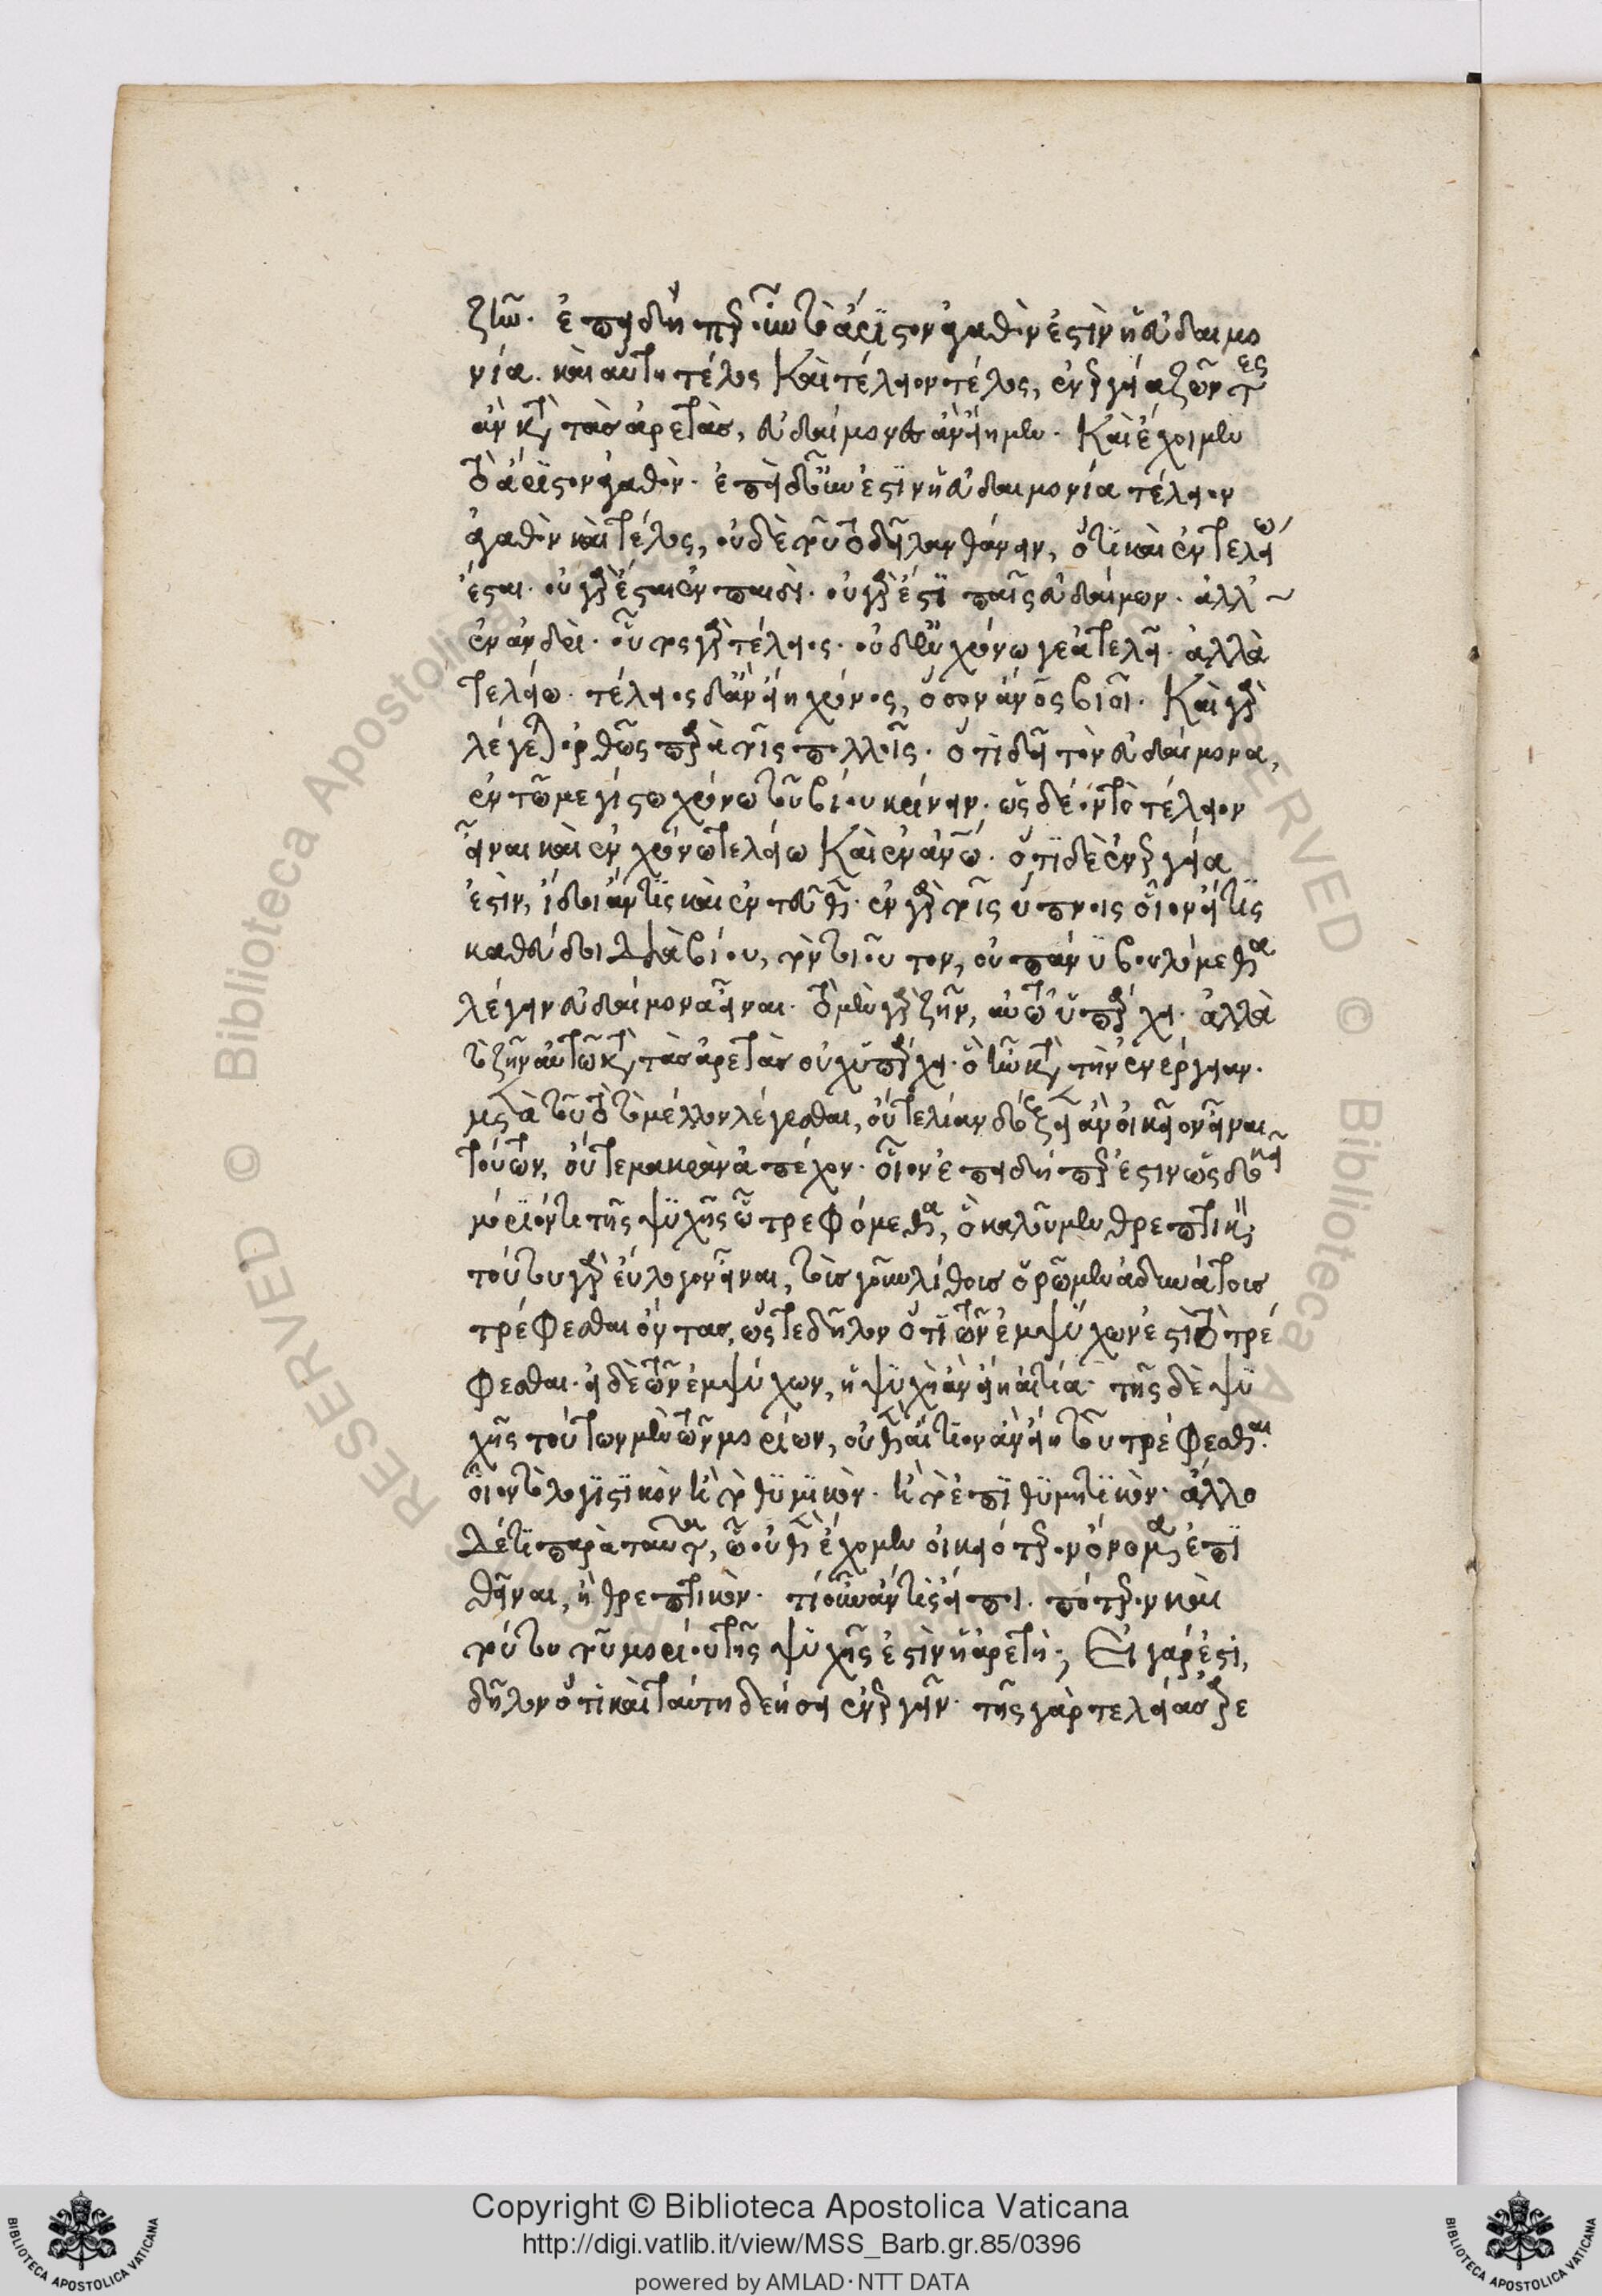 ζῆν. ἐπειδήπερ οὖν τὸ ἄριστον ἀγαθὸν ἐστὶν ἡ εὐδαιμο
νία. καὶ αὕτη τέλος καὶ τέλειον τέλος, ἐνεργεία ζῶντες
ἂν κατὰ τὰς ἀρετὰς, εὐδαίμονες ἂν εἴημεν. καὶ ἔχοιμεν
τὸ ἄριστον ἀγαθόν. ἐπεὶ δ' οὖν ἐστιν ἡ εὐδαιμονία τέλειον
ἀγαθὸν καὶ τέλος, οὐδὲ τοῦτο δεῖ λανθάνειν, ὅτι καὶ ἐν τελείω
ἔσται. οὐ γὰρ ἔσται ἐν παιδί. οὐ γὰρ ἔστι παῖς εὐδαίμων. ἀλλ'
ἐν ἀνδρί. οὗτος γὰρ τέλειος. οὐδ' ἐν χρόνω γε ἀτελεῖ. ἀλλὰ
τελείω. τέλειος δ' ἂν εἴη χρόνος, ὅσον ἄνθρωπος βιοῖ. καὶ γὰρ
λέγεται ὀρθῶς παρὰ τοῖς πολλοῖς. ὅτι δεῖ τὸν εὐδαίμονα,
ἐν τῶ μεγίστω χρόνω τοῦ βίου κρίνειν. ὡς δέον τὸ τέλειον
εἶναι καὶ ἐν χρόνω τελείω καὶ ἐν ἀνθρώπω. ὅτι δὲ ἐνέργεια
ἐστὶν, ἴδοι ἄν τις καὶ ἐντεῦθεν. ἐν γὰρ τοῖς ὕπνοις οἷον εἴ τις
καθεύδοι διὰ βίου, τὸν τοιοῦτον, οὐ πάνυ βουλόμεθα
λέγειν εὐδαίμονα εἶναι. τὸ μὲν γὰρ ζῆν, αὐτῶ ὑπάρχει. ἀλλὰ
τὸ ζῆν αὐτῶ κατὰ τὰς ἀρετὰς οὐχ ὑπάρχει. ὃ ἦν κατὰ τὴν ἐνέργειαν.
μετὰ τοῦτο τὸ μέλλον λέγεσθαι, οὔτε λίαν δόξει ἂν οἰκεῖον εἶναι
τούτων, οὔτε μακρὰν ἀπέχον. οἷον ἐπειδήπερ ἐστιν ὡς δοκεῖ
μόριόν τι τῆς ψυχῆς ὧ τρεφόμεθα, ὃ καλοῦμεν θρεπτικόν;
τοῦτο γὰρ εὔλογον εἶναι, τοὺς γοῦν λίθους ὁρῶμεν ἀδυνάτους
τρέφεσθαι ὄντας, ὥστε δῆλον ὅτι τῶν ἐμψύχων ἐστὶ τὸ τρέ
φεσθαι. εἰ δὲ τῶν ἐμψύχων, ἡ ψυχὴ ἂν εἴη αἰτία. τῆς δὲ ψυ
χῆς τούτων μὲν τῶν μορίων, οὐθὲν αἴτιον ἂν εἴη τοῦ τρέφεσθαι.
οἷον τὸ λογιστικὸν ἢ τὸ θυμικὸν. ἢ τὸ ἐπιθυμητικὸν. ἄλλο
δέ τι παρὰ ταῦτα, ὧ οὐθὲν ἔχομεν οἰκειότερον ὄνομα ἐπι
θεῖναι, ἢ θρεπτικὸν. τί οὖν ἄν τις εἴποι. πότερον καὶ
τούτου τοῦ μορίου τῆς ψυχῆς ἐστὶν ἡ ἀρετή; Εἰ γάρ ἐστι,
δῆλον ὅτι καὶ ταύτη δεήσει ἐνεργεῖν. τῆς γὰρ τελείας ἀρε
Copyright © Biblioteca Apostolica Vaticana
http://digi.vatlib.it/view/MSS_Barb.gr.85/0396
powered by AMLAD·NTT DATA